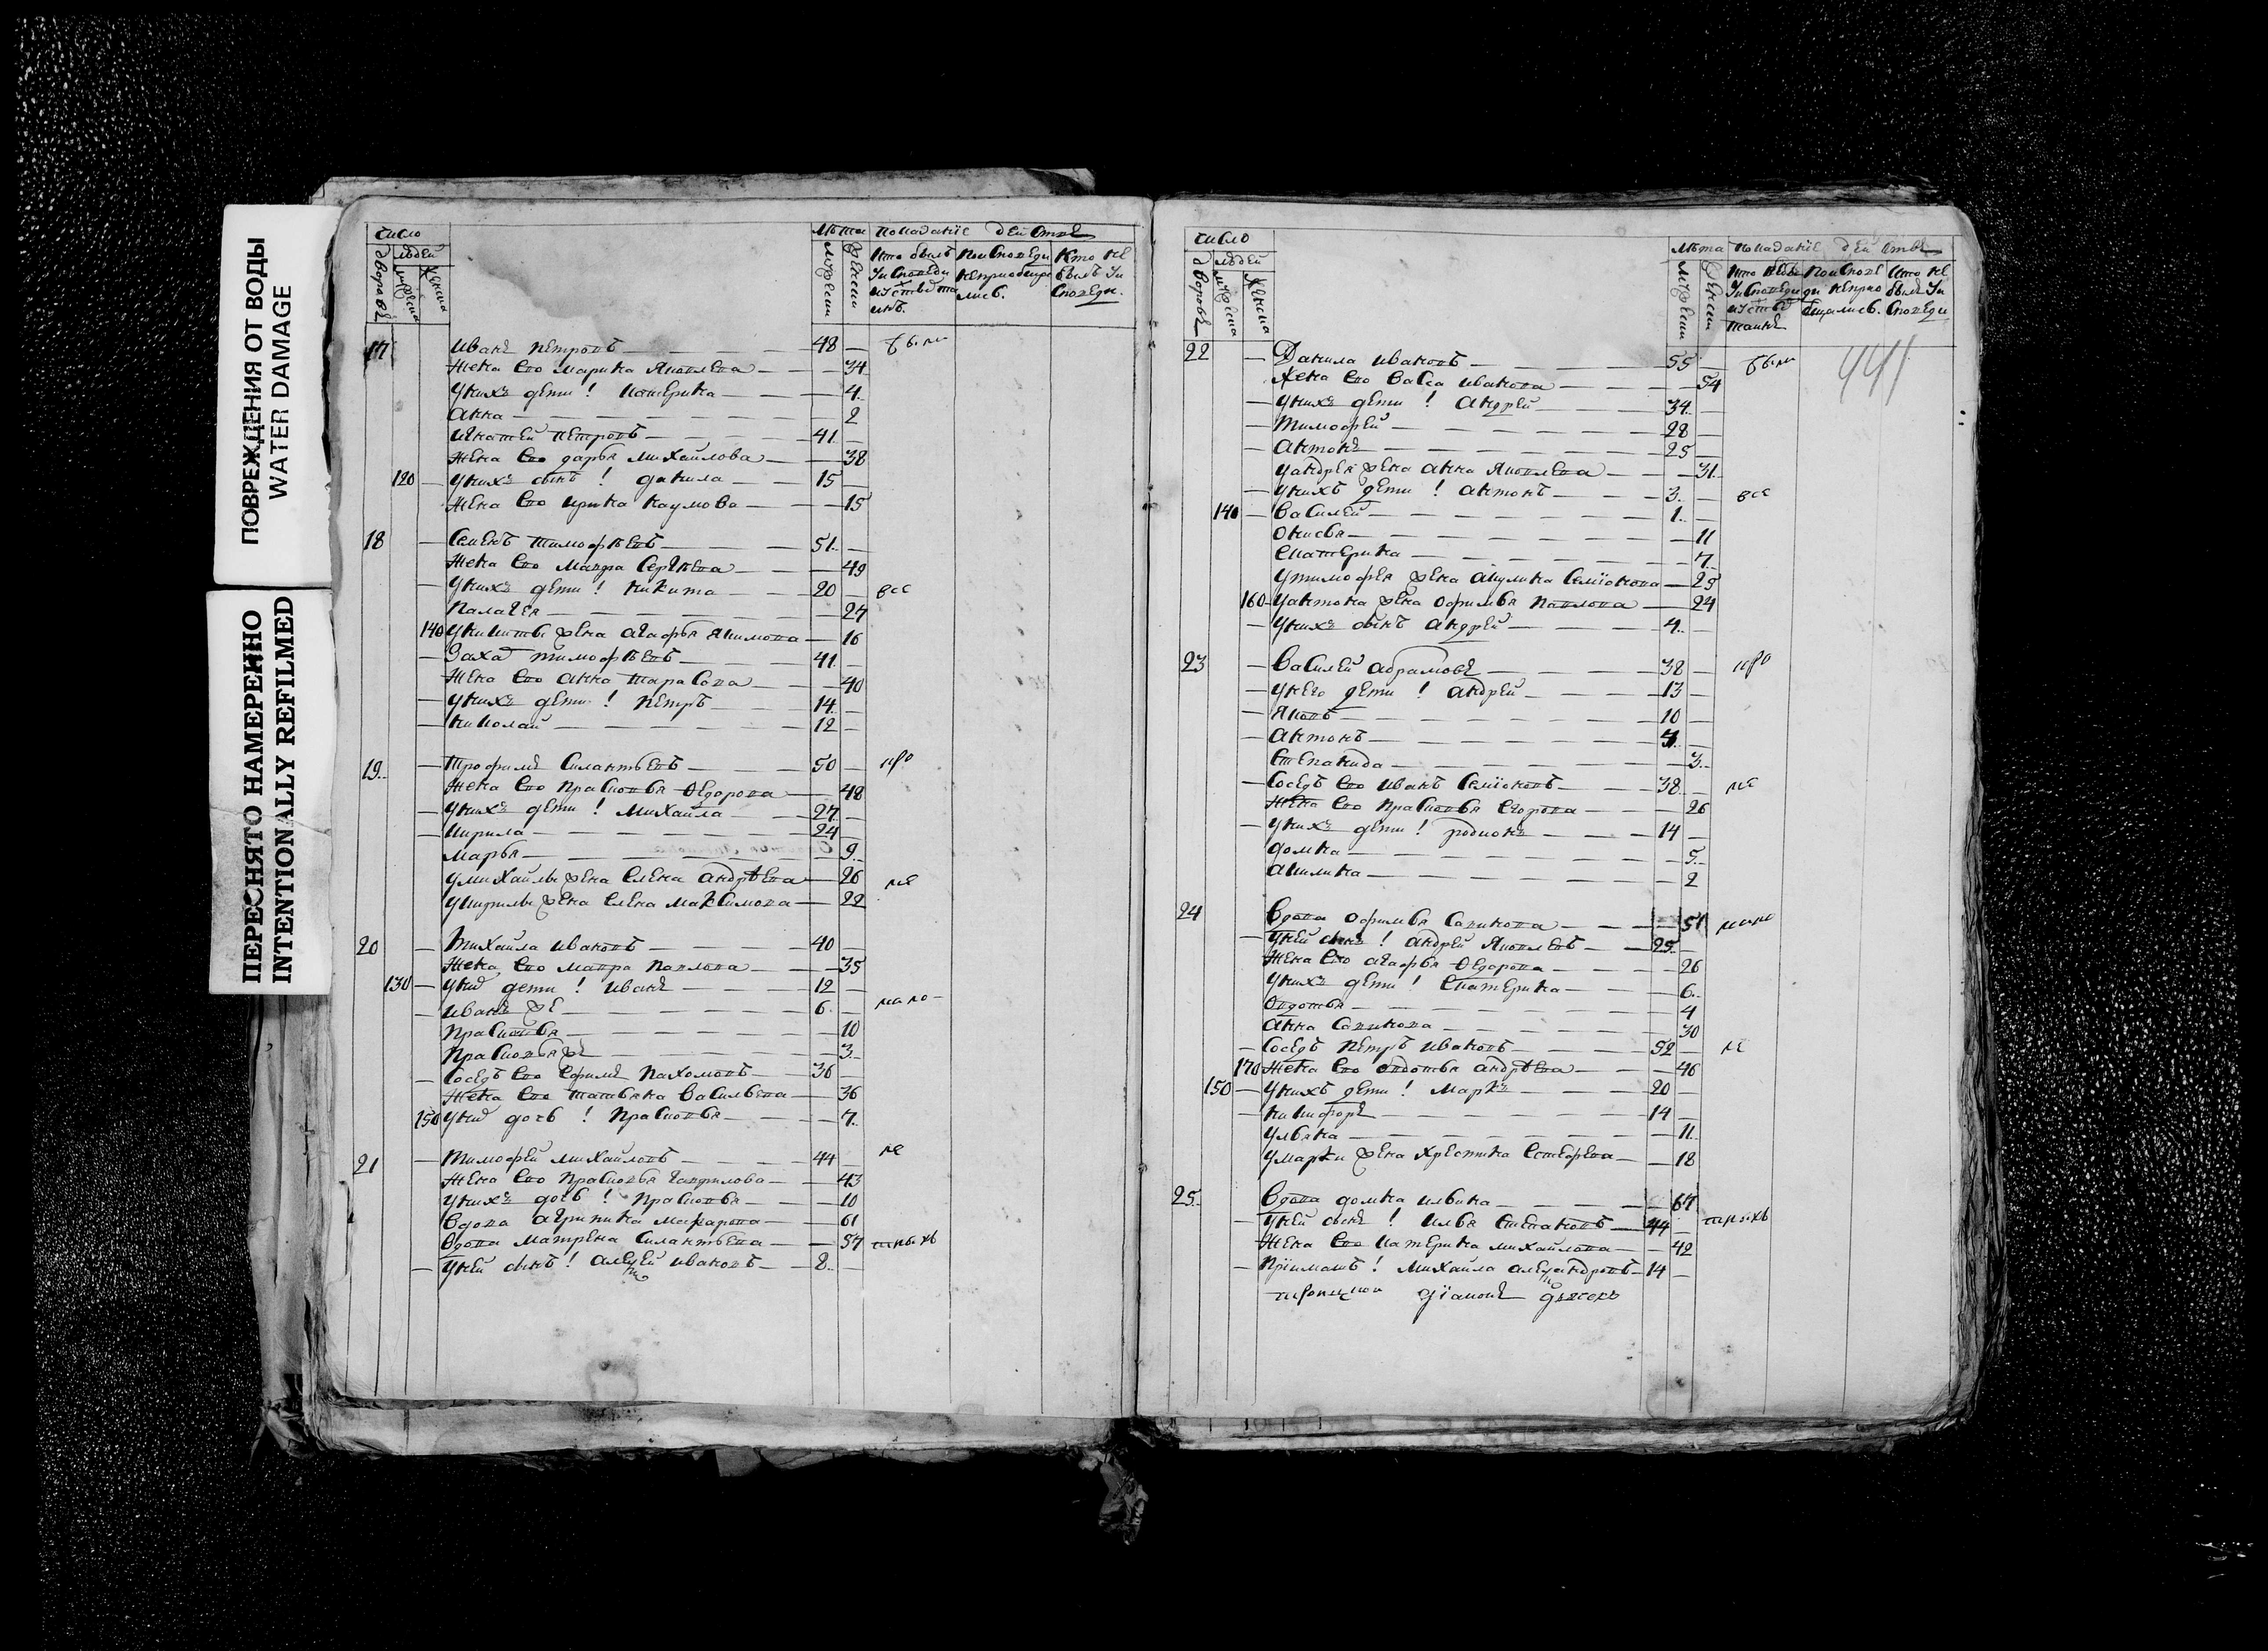 ПОВРЕЖДЕНИЯ ОТ ВОДЫ
WATER DAMAGE
ПЕРЕСНЯТО НАМЕРЕННО
INTENTIONALLY REFILMED
число
дворовъ
людей
мужеска
женска
лѣта
мужески
женски
показанїе действъ
Кто былъ
у исповеди
по исповеди
Кто не
былъ у и
споведи.
17 Иванъ Петровъ 48 были
Жена его Марина Яковлева 34
У нихъ дети! Катерина 4
Анна 2
Игнатей Петровъ 41
Жена его Дарья Михайлова 38
120 У нихъ сынъ! Данила 15
Жена его Ирина Наумова 15
18 Семенъ Тимофѣевъ 51
Жена его Мавра Сергѣева 49
У нихъ дети! Никита 20 все
Палагея 27
140 У Никиты жена Агафья Якимова 16
Захаръ Тимофѣевъ 41
Жена его Анна Тарасова 40
У нихъ дети! Петръ 14
Николай 12
19 Трофимъ Силантьевъ 50
Жена его Прасковья Федорова 48
У нихъ дети! Михайла 27
Кирила 24
Марья 9
У Михайлы жена Елена Андрѣева 26
У Кирилы жена Елена Максимова 22
20 Михайла Ивановъ 40
Жена его Мавра Павлова 35
130 У нихъ дети! Иванъ 12
Иванъ же 6
Прасковья 10
Прасковья же 3
Соседъ его Ефимъ Пахомовъ 36
Жена его Татьяна Васильева 36
150 У нихъ дочь! Прасковья 7
21 Тимофей Михайловъ 44
Жена его Прасковья Гаврилова 43
У нихъ дочь! Прасковья 10
Вдова Агрипина Макарова 61
Вдова Матрена Силантьева 57
У ней сынъ! Алексей Ивановъ 8
число
дворовъ
людей
мужеска
женска
лѣта
мужески
женски
показанїе действъ
441
22 Данила Ивановъ 55 были
Жена его Васса Иванова 54
У нихъ дети! Андрей 34
Тимофей 28
Антонъ 25
У Андрея жена Анна Яковлева 31
У нихъ дети! Антонъ 3 все
140 Василей 1
Фкисья 11
Екатерина 7
У Тимофея жена Акулина Семїонова 25
160 У Антона жена Офимья Павлова 24
У нихъ сынъ Андрей 4
23 Василей Абрамовъ 38
У него дети! Андрей 13
Яковъ 10
Антонъ
Степанида 3
Соседъ его Иванъ Семїоновъ 38
Жена его Прасковья Егорова 26
У нихъ дети! Родионъ 14
Домна 5
Акилина 2
24 Вдова Офимья Савикова 51
У ней сынъ! Андрей Яковлевъ 25
Жена его Агафья Федорова 26
У нихъ дети! Екатерина 6
Овдотья 4
Анна Савикова 30
Соседъ Петръ Ивановъ 52
170 Жена его Овдотья Андрѣева 46
150 У нихъ дети! Маркъ 20
Никифоръ 14
Ульяна 11
У Марки жена Хрестина Естефѣева 18
25 Вдова Домна Ильина 67
У ней сынъ! Илья Степановъ 44
Жена его Катерина Михайлова 42
Прїимышъ! Михайла Александровъ 14
дїаконъ